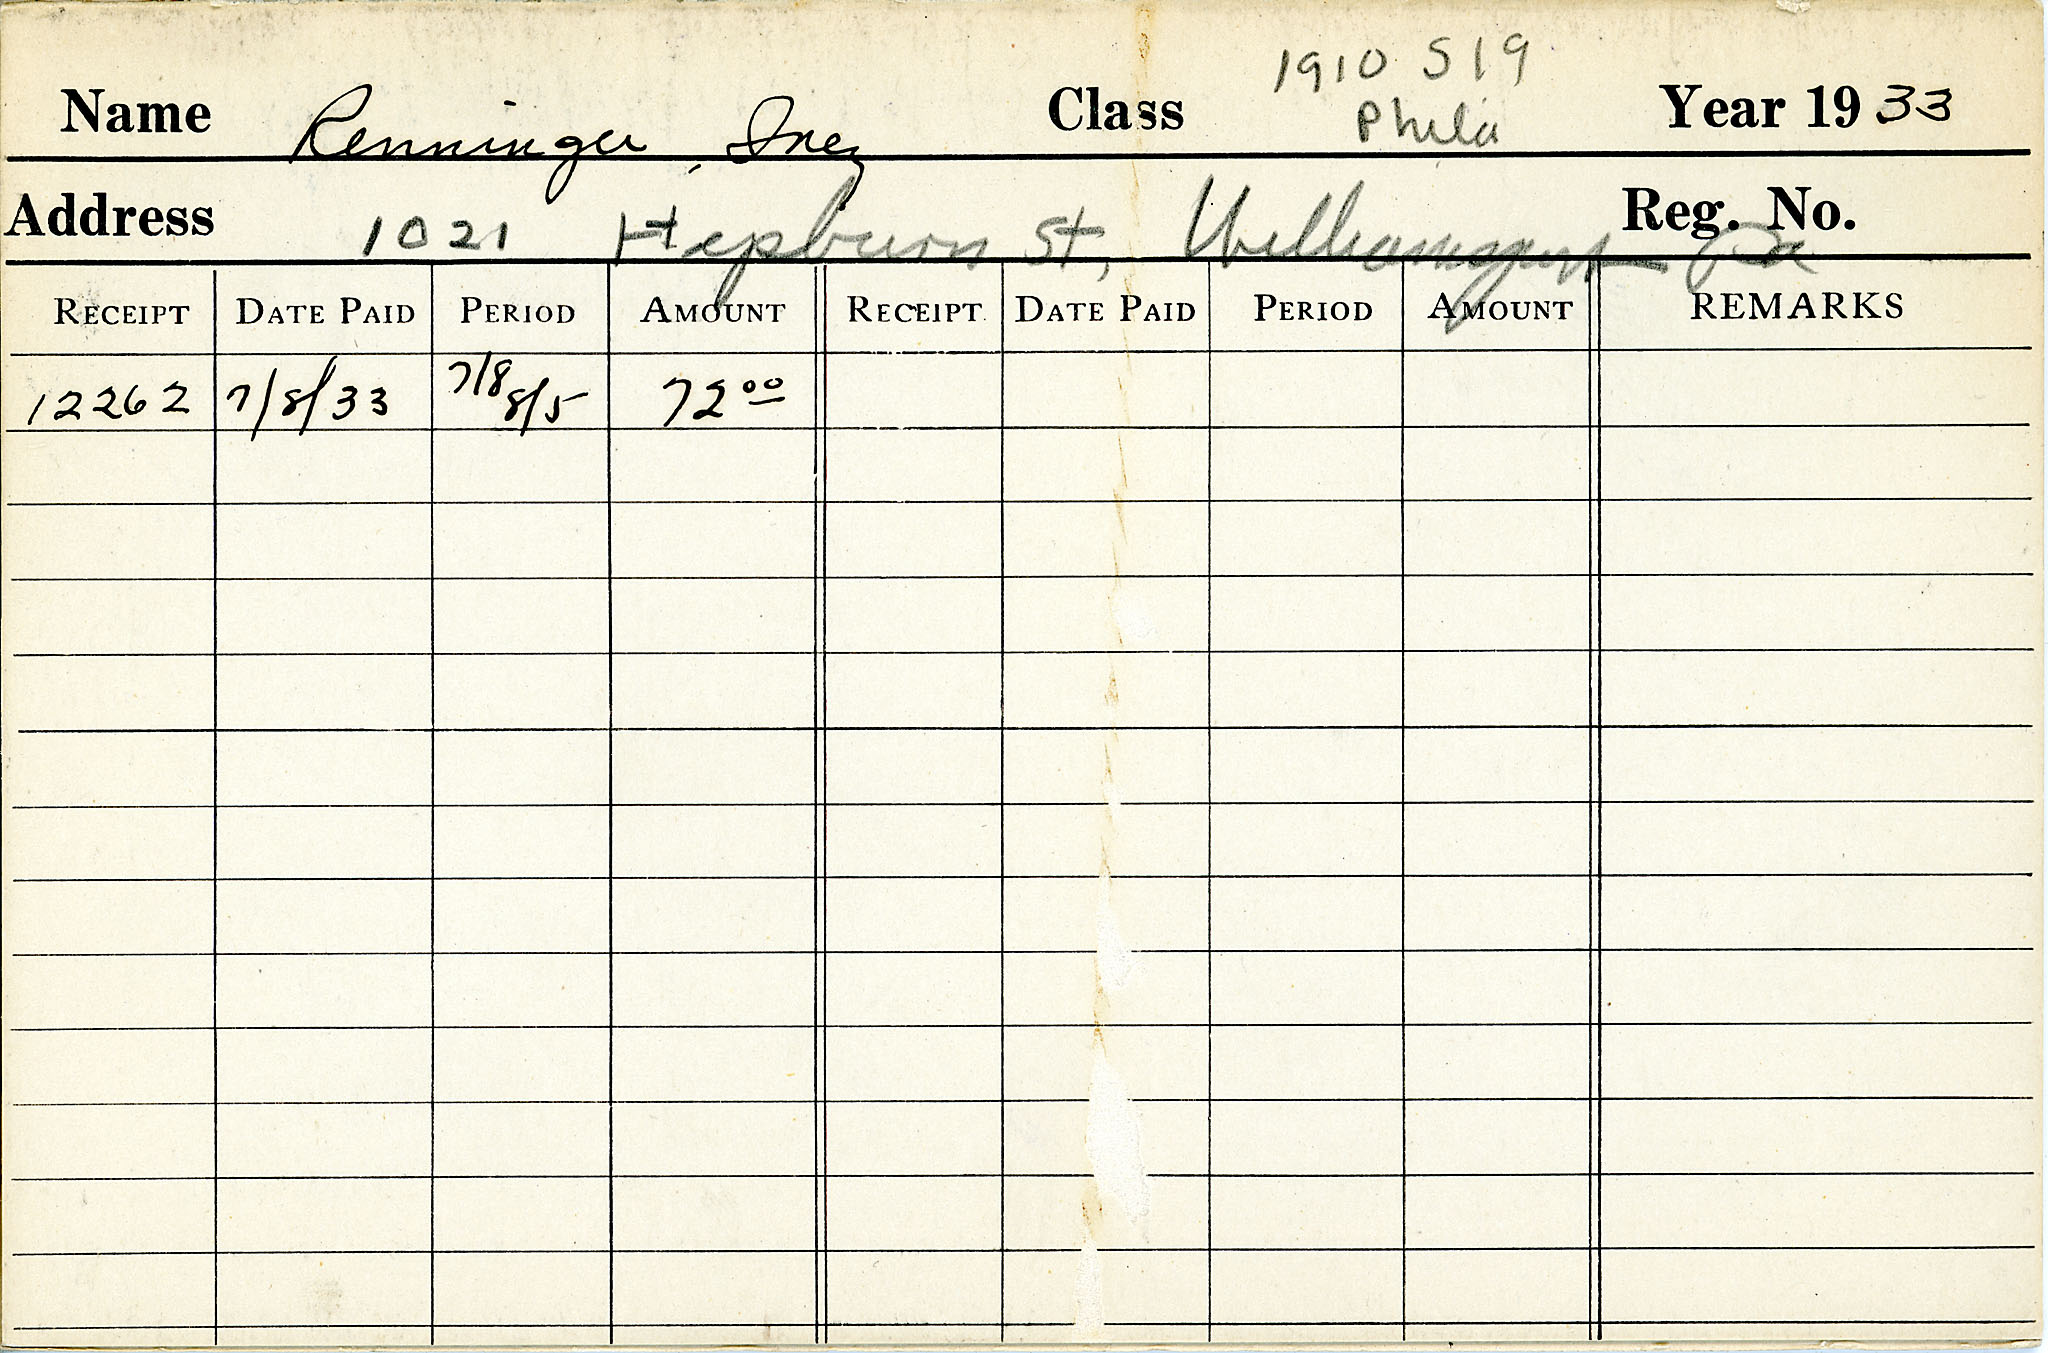 1910 S 19
Name Renninger, Inez Class Phila Year 19 33
Address 1021 Hepburn St, Williamsport Pa Reg. No.
RECEIPT DATE PAID PERIOD AMOUNT RECEIPT DATE PAID PERIOD AMOUNT REMARKS
12262 7/8/33 7/8 8/5 72 00